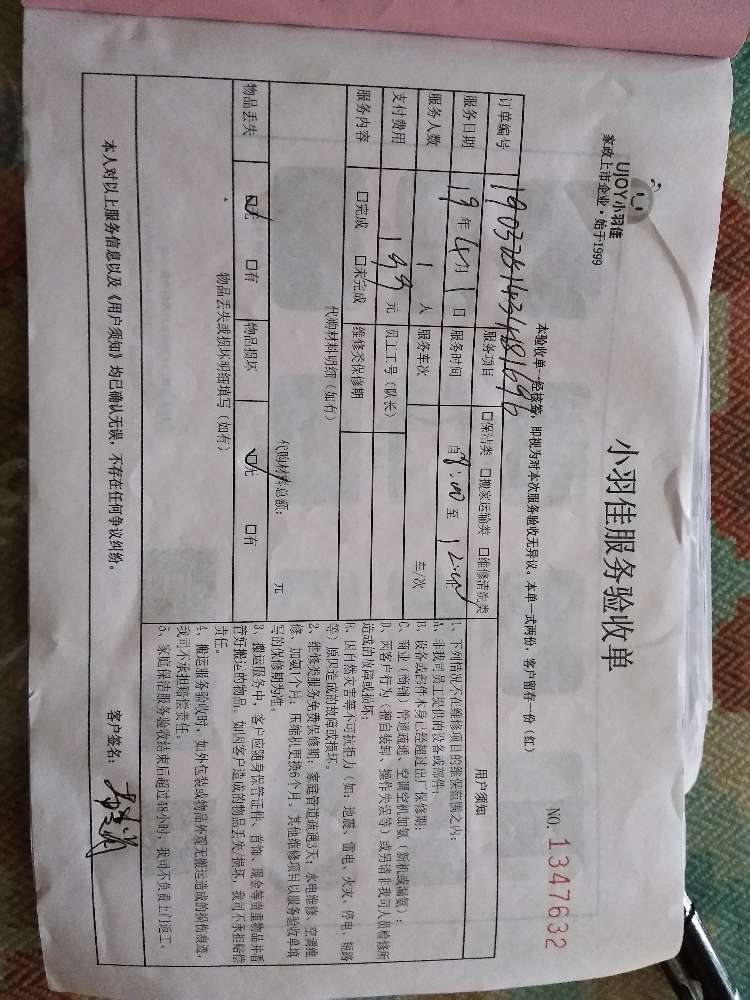 UJOY小羽佳
家政上市企业·始于1999
小羽佳服务验收单
NO. 1347632
本验收单一经核签，即视为对本次服务验收无异议。本单一式两份，客户留存一份（红）
订单编号
服务项目 口保洁类 口搬家运输类 口维修清洗类
服务日期 19年4月1日 服务时间 自8:00至12:00
服务人数 1人 服务车次 车/次
支付费用 199元 员工工号（队长）
服务内容 口完成 口未完成 维修类保修期
代购材料明细（如有）
代购材料总额： 元
物品丢失 ☑无 口有 物品损坏 ☑无 口有
物品丢失或损坏明细填写（如有）
用户须知
1、下列情况不在维修项目的维保范围之内：
A、非我司员工提供的设备或部件；
B、设备或部件本身已经超过出厂保修期；
C、商业（商铺）管道疏通、空调空机加氨（新机或漏氨）；
D、因客户行为（擅自装卸、操作失误等）或另请非我司人员检修所
造成的故障或损坏；
E、因自然灾害等不可抗拒力（如：地震、雷电、火灾、停电、短路
等）原因造成的故障或损坏。
2、维修类服务免费保修期：家庭管道疏通3天；水电维修、空调维
修、加氨1个月；压缩机更换6个月。其他维修项目以服务验收单填
写的保修期为准。
3、搬运服务中，客户应随身保管证件、首饰、现金等贵重物品并看
管好搬运的物品。如因客户造成的物品丢失/损坏，我司不承担赔偿
责任。
4、搬运服务验收时，如外包装或物品外观无搬运造成的损伤痕迹，
我司不承担赔偿责任。
5、家庭保洁服务验收结束后超过48小时，我司不负责上门返工。
本人对以上服务信息以及《用户须知》均已确认无误，不存在任何争议纠纷。
客户签名：